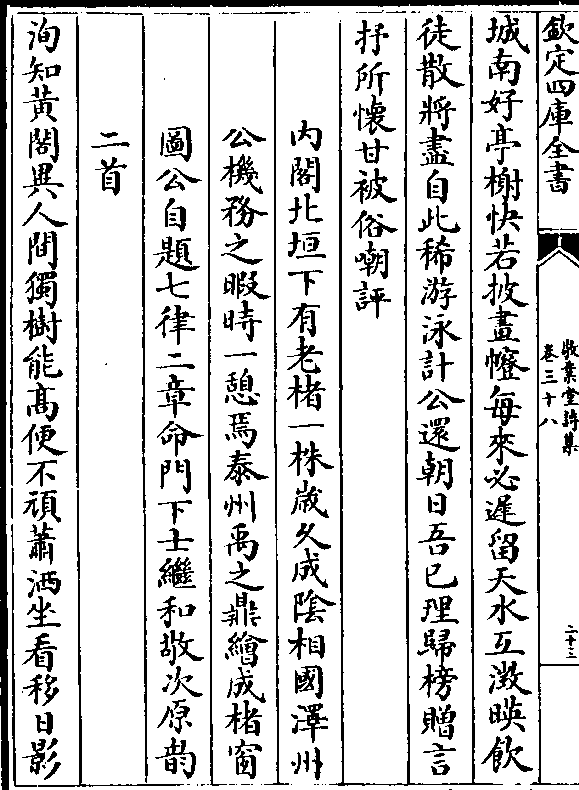 欽定四庫全書
敬業堂詩集
卷三十八
二十三
城南好亭榭快若披畫㡧每來必遲留天水互激暎飲
徒散將盡自此稀游泳計公還朝日吾已理歸榜贈言
抒所懷甘被俗嘲評
内閣北垣下有老楮一株歲久成陰相國澤州
公機務之暇時一憩焉泰州禹之鼎繪成楮窗
圖公自題七律二章命門下士繼和敬次原韵
二首
洵知黃閣異人間獨樹能髙便不頑蕭洒坐看移日影